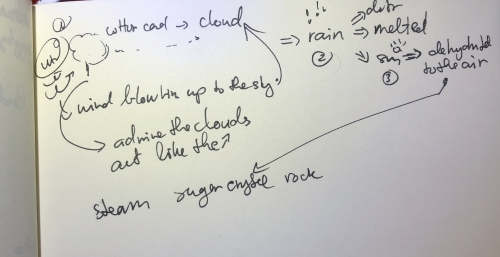 cotton cand → cloud
⇒ rain ⇒ melted
②
sun ⇒ dehydrated
to the air
③
wind blow him up to the sky.
admire the clouds
act like the↗
steam sugar crystle rock